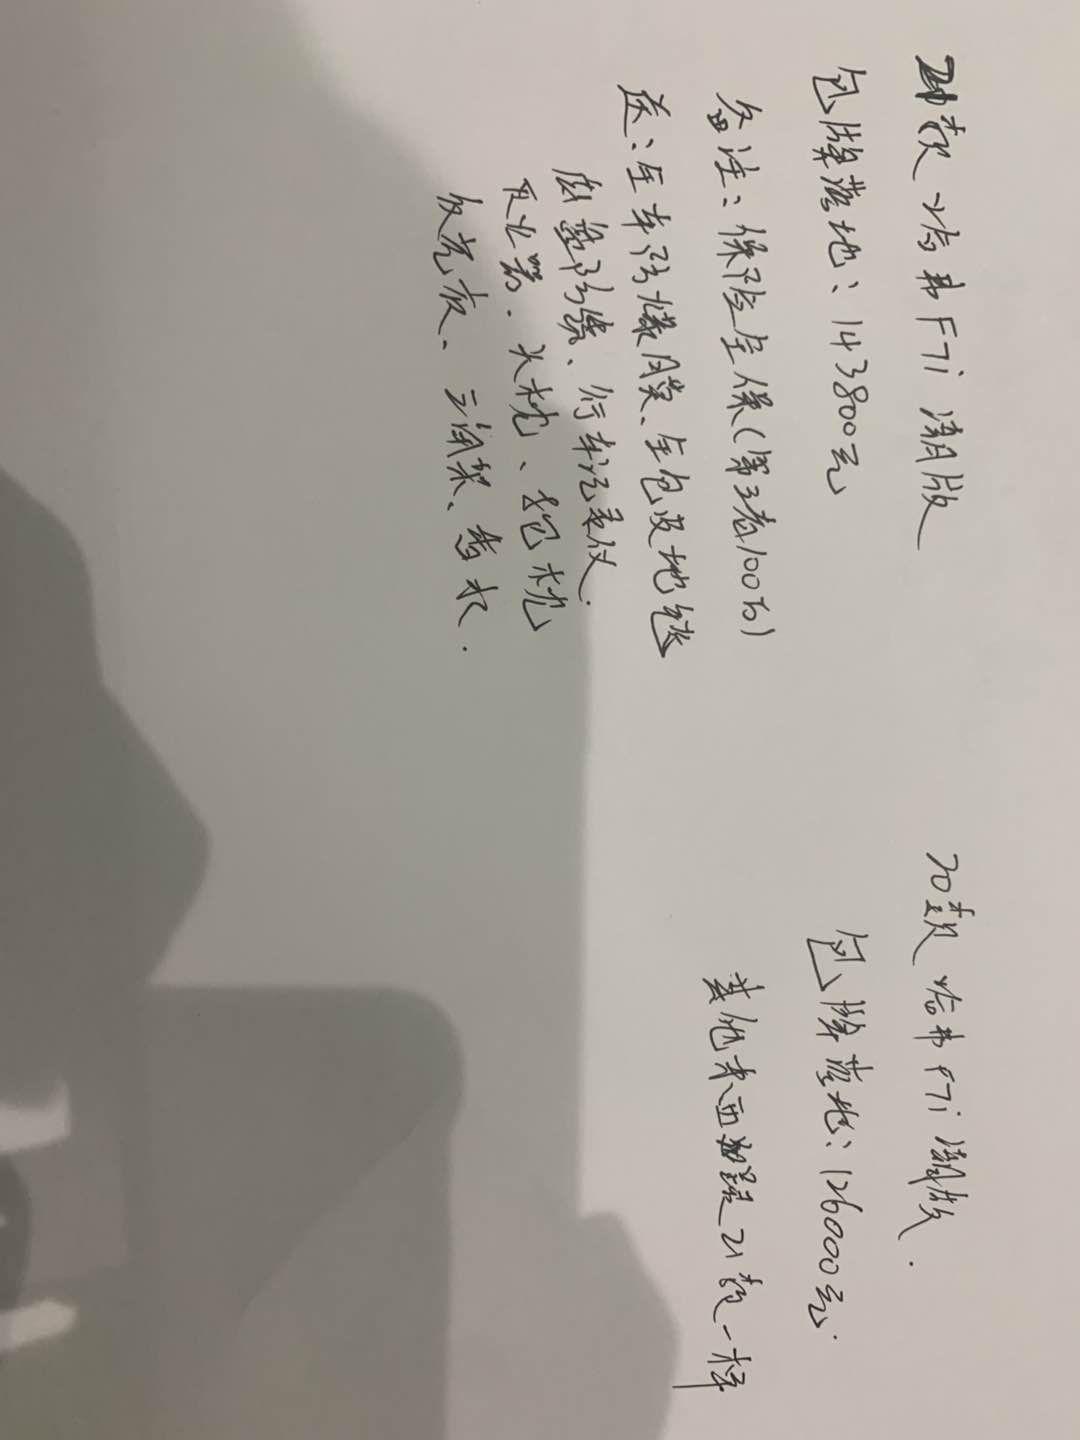 21款哈弗F7i潮版
包牌落地：143800元
备注：保险全保(第三者100万)
送：全车防爆膜、全包皮地毯
底盘防锈、行车记录仪.
灭火器.头枕、抱枕
反光衣、三角架、香水.
20款哈弗F7i潮版.
包牌落地：126000元.
其他东西都跟21款一样